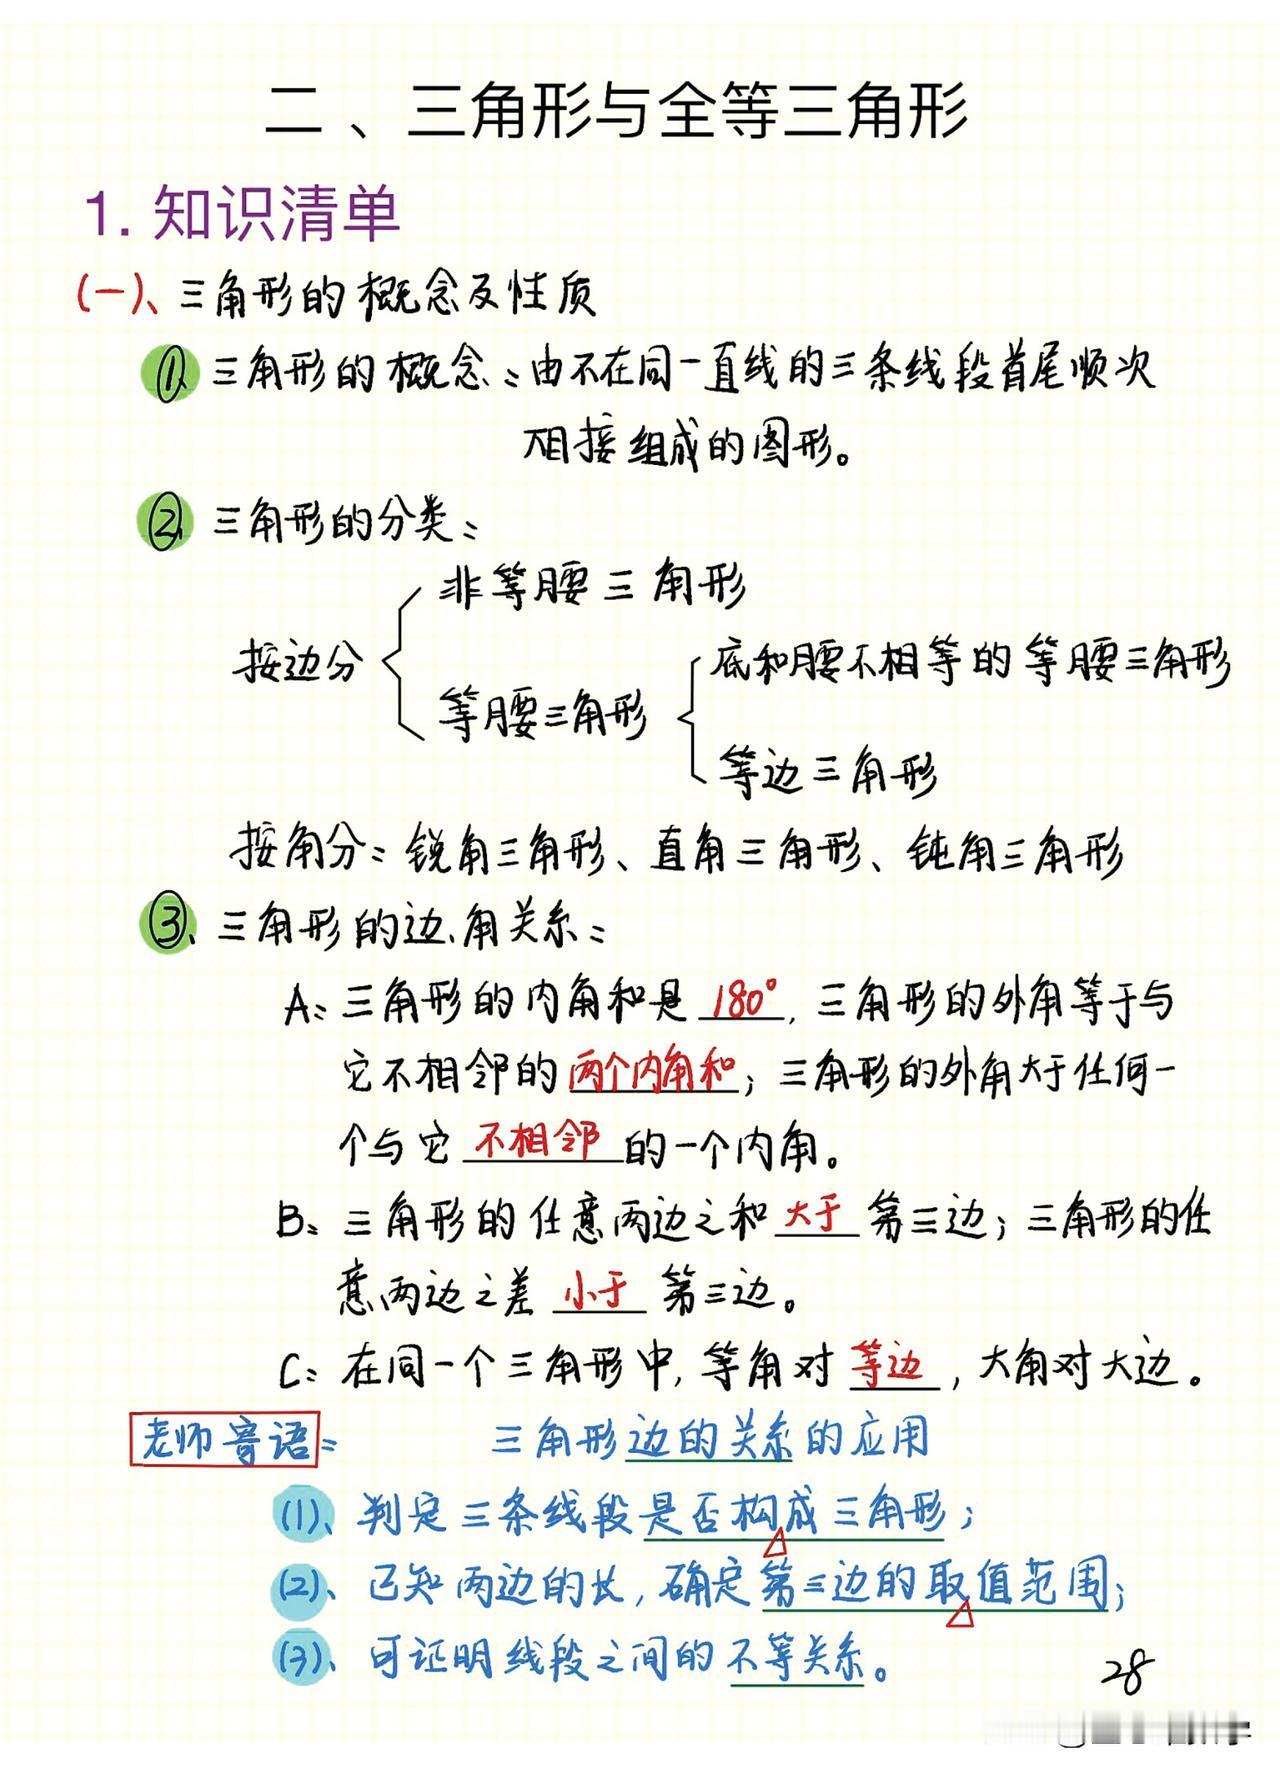 二、三角形与全等三角形
1. 知识清单
(一)、三角形的概念及性质
①、三角形的概念:由不在同一直线的三条线段首尾顺次
相接组成的图形。
②、三角形的分类:
非等腰三角形
按边分
底和腰不相等的等腰三角形
等腰三角形
等边三角形
按角分:锐角三角形、直角三角形、钝角三角形
③、三角形的边、角关系:
A:三角形的内角和是 180°,三角形的外角等于与
它不相邻的两个内角和;三角形的外角大于任何一
个与它 不相邻 的一个内角。
B:三角形的任意两边之和 大于 第三边;三角形的任
意两边之差 小于 第三边。
C:在同一个三角形中,等角对 等边 ,大角对大边。
老师寄语: 三角形边的关系的应用
(1)、判定三条线段是否构成三角形;
(2)、已知两边的长,确定第三边的取值范围;
(3)、可证明线段之间的不等关系。
28